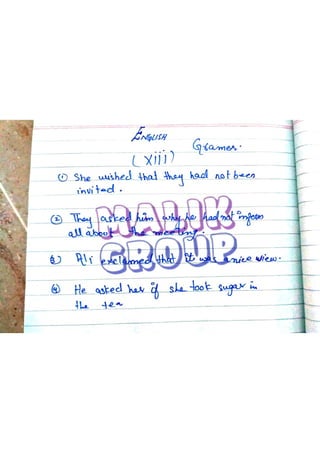 ENGLISH
Gramer.
(xiii)
① She wished that they had not been
invited.
② They asked him why he had not inform
all about the meeting.
③ Ali exclaimed that it was a nice view.
④ He asked her if she took sugar in
the tea
MALIK
GROUP